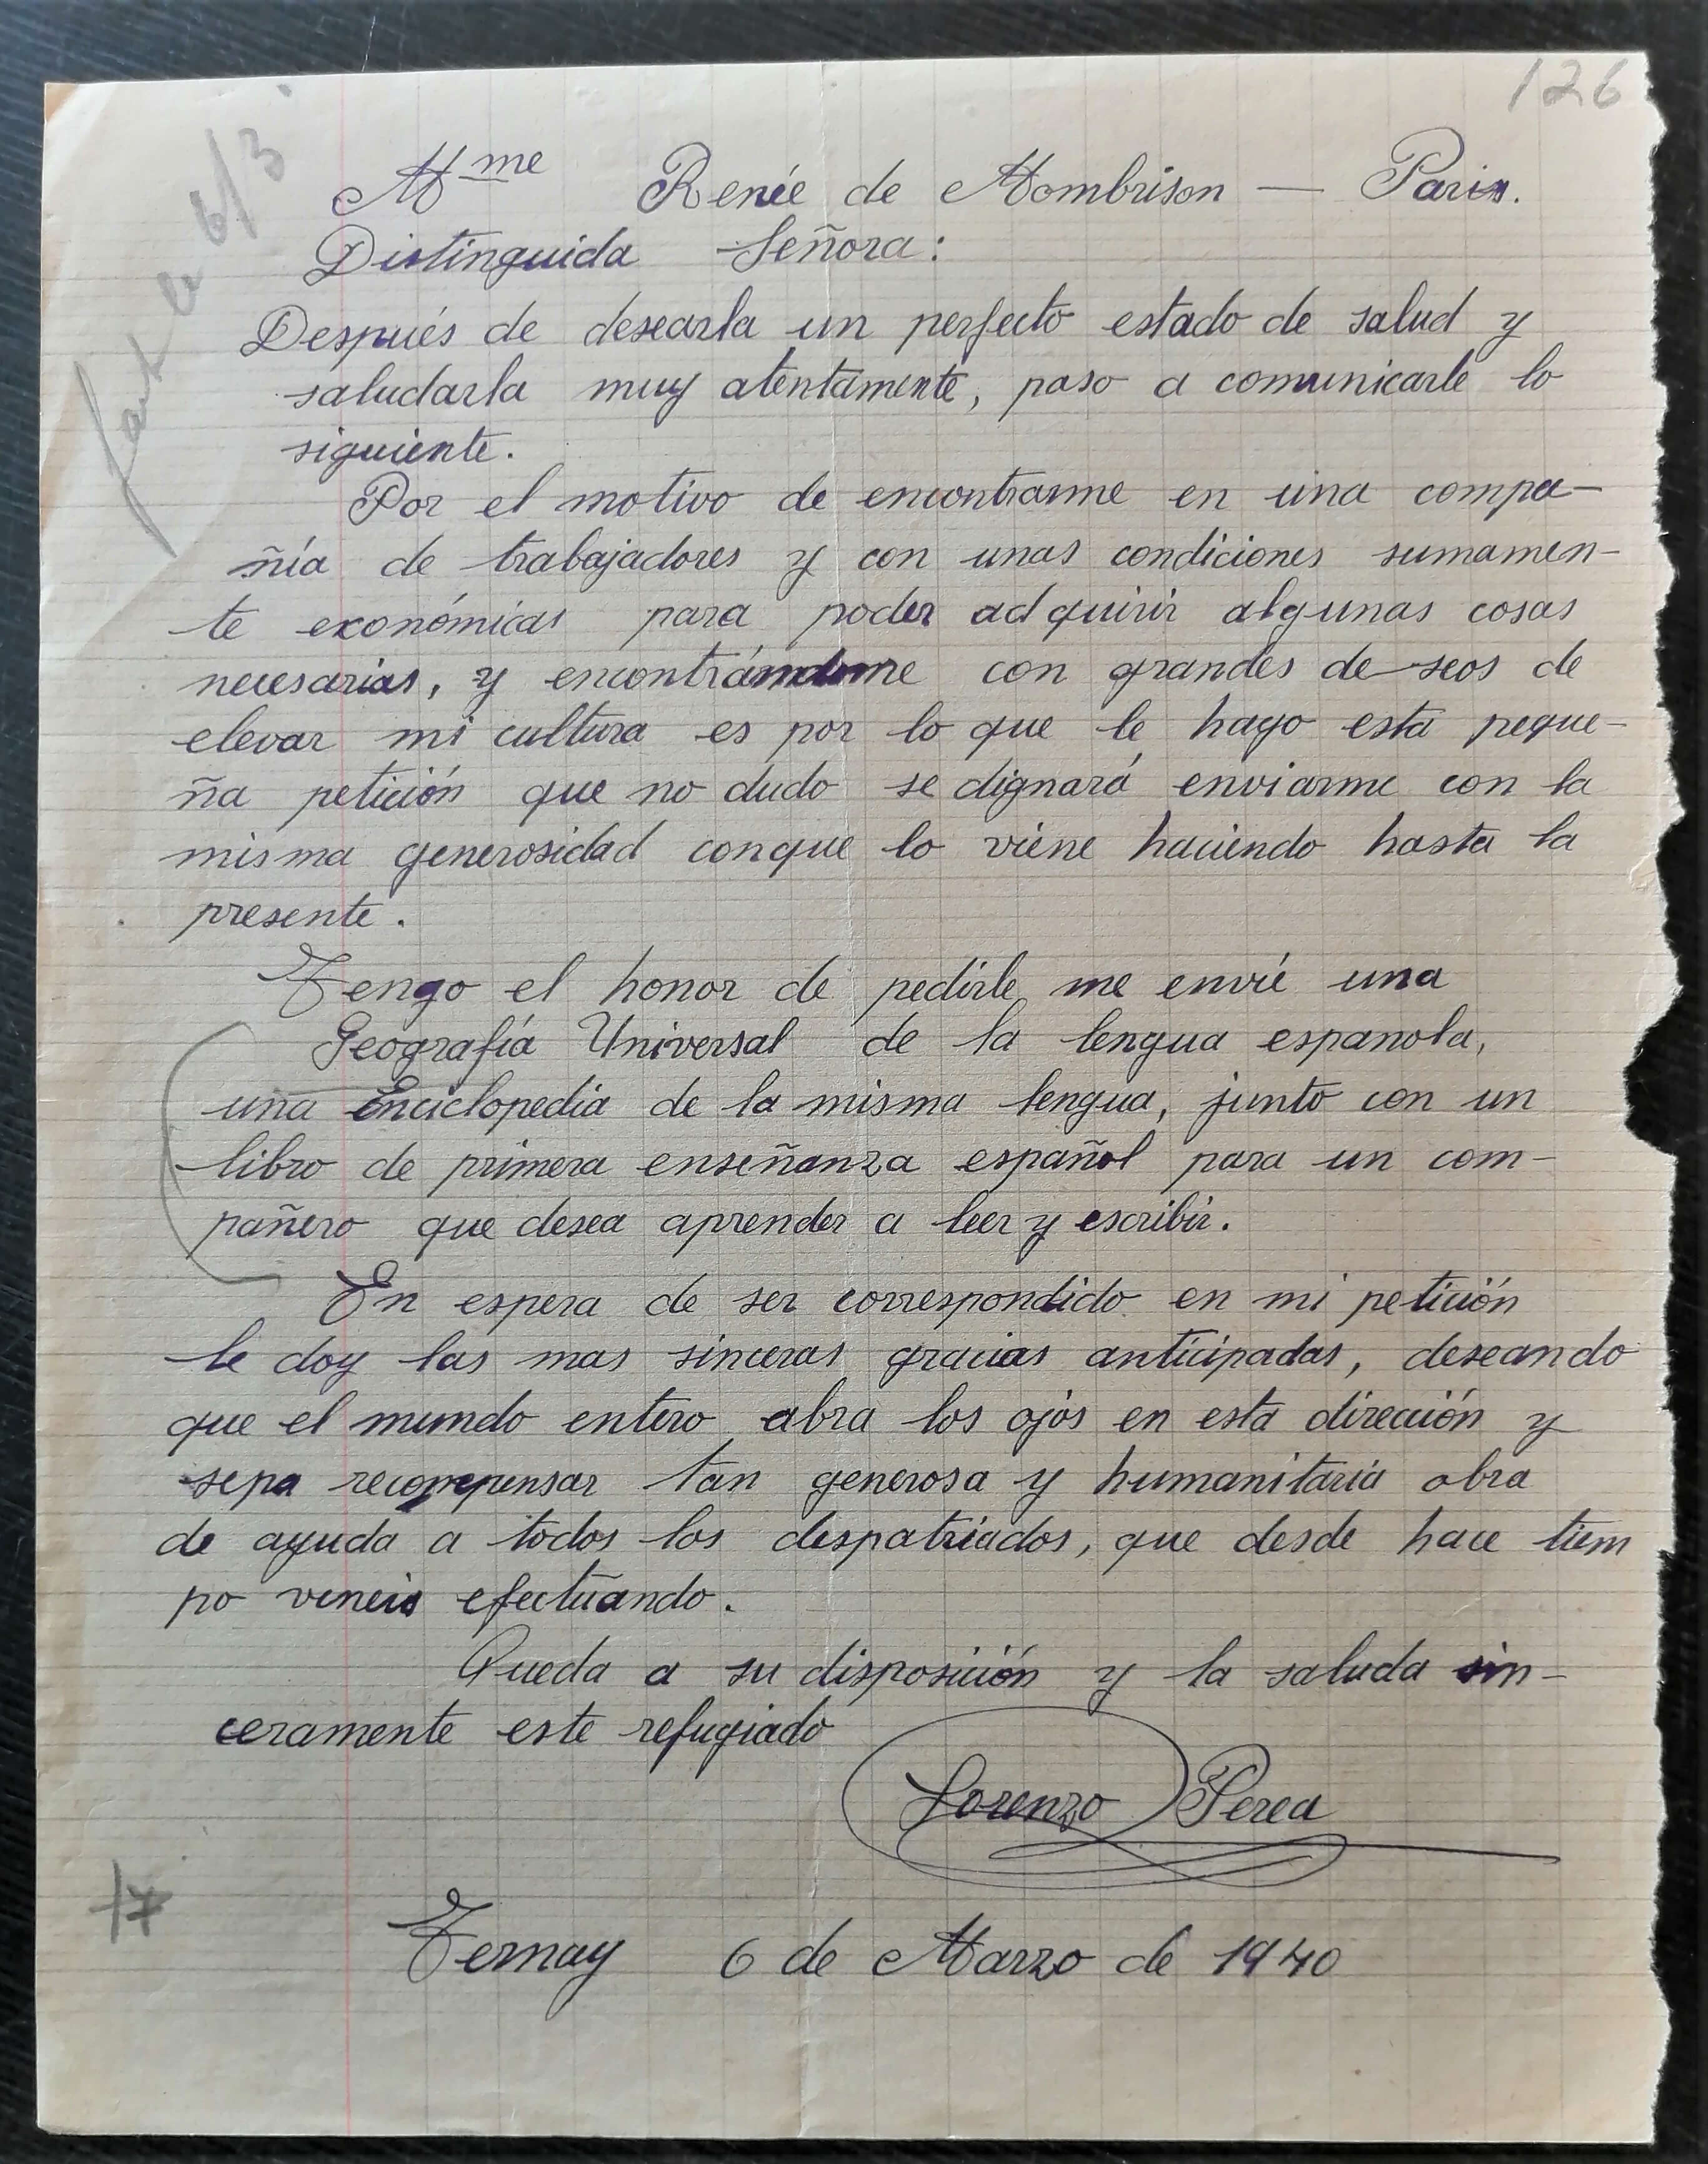 126
6/3
Mme Renée de Mombrison — Paris.
Distinguida Señora:
Después de desearla un perfecto estado de salud y
saludarla muy atentamente, paso a comunicarle lo
siguiente.
Por el motivo de encontrarme en una compa-
ñía de trabajadores y con unas condiciones sumamen-
te económicas para poder adquirir algunas cosas
necesarias, y encontrándome con grandes deseos de
elevar mi cultura es por lo que le hago esta peque-
ña petición que no dudo se dignará enviarme con la
misma generosidad conque lo viene haciendo hasta la
presente.
Tengo el honor de pedirle me envie una
Geografía Universal de la lengua espanola,
una Enciclopedia de la misma lengua, junto con un
libro de primera enseñanza español para un com-
pañero que desea aprender a leer y escribir.
En espera de ser correspondido en mi petición
le doy las mas sinceras gracias anticipadas, deseando
que el mundo entero abra los ojos en esta dirección y
sepa recompensar tan generosa y humanitaria obra
de ayuda a todos los despatriados, que desde hace tiem
po veneis efectuando.
Queda a su disposición y la saluda sin-
ceramente este refugiado
Lorenzo Perea
17
Ternay 6 de Marzo de 1940